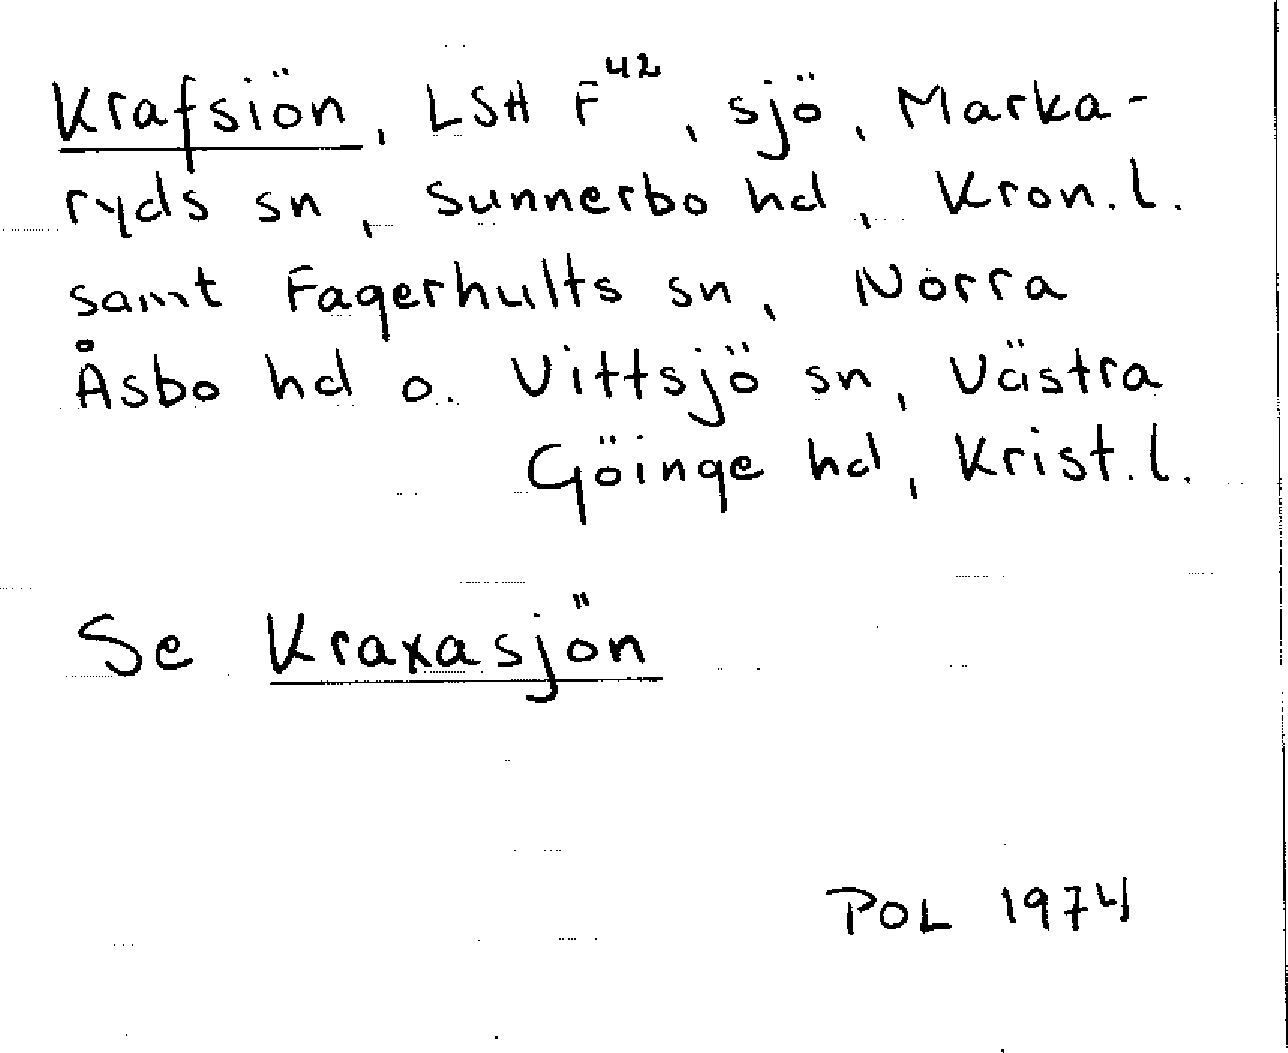 Krafsiön, LSH F⁴², sjö, Marka-
ryds sn, Sunnerbo hd, Kron.l.
samt Fagerhults sn, Norra
Åsbo hd o. Vittsjö sn, Västra
Göinge hd, Krist.l.
Se Kraxasjön
POL 1974